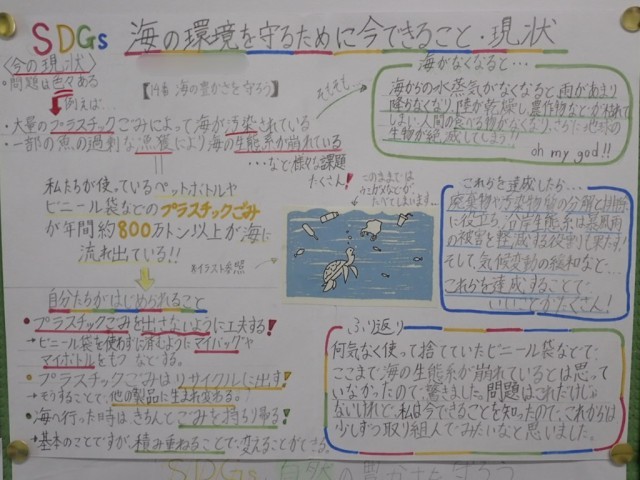 SDGs 海の環境を守るために今できること・現状
〈今の現状〉
・問題は色々ある
例えば…
【14番 海の豊かさを守ろう】
・大量のプラスチックごみによって海が汚染されている
・一部の魚の過剰な漁獲により海の生態系が崩れている
…など様々な課題
たくさん!
そもそも…
海がなくなると…
海からの水蒸気がなくなると、雨があまり
降らなくなり、陸が乾燥し、農作物などが枯れて
しまい、人間の食べる物がなくなり、さらに地球の
生物が絶滅してしまう!!
oh my god!!
私たちが使っているペットボトルや
ビニール袋などのプラスチックごみ
が年間約800万トン以上が海に
流れ出ている!!
※イラスト参照
このままでは
ウミガメなどが
たべてしまいます…
これらを達成したら…
廃棄物や汚染物質の分解と排除
に役立ち、沿岸生態系は暴風雨
の被害を軽減する役割も果たす!
そして、気候変動の緩和など…
これらを達成することで、
いいことがたくさん!
自分たちがはじめられること
・プラスチックごみを出さないように工夫する!
→ビニール袋を使わずに済むようにマイバッグや
マイボトルをもつ などする。
・プラスチックごみはリサイクルに出す!
→そうすることで、他の製品に生まれ変わる。!
・海へ行った時はきちんとごみを持ち帰る!
→基本のことですが、積み重ねることで変えることができる。
ふり返り
何気なく使って捨てていたビニール袋などで、
ここまで海の生態系が崩れているとは思って
いなかったので、驚きました。問題はこれだけじゃ
ないけれど、私は今できることを知ったので、これからは
少しずつ取り組んでみたいなと思いました。
SDGs 自然の豊かさを守ろう